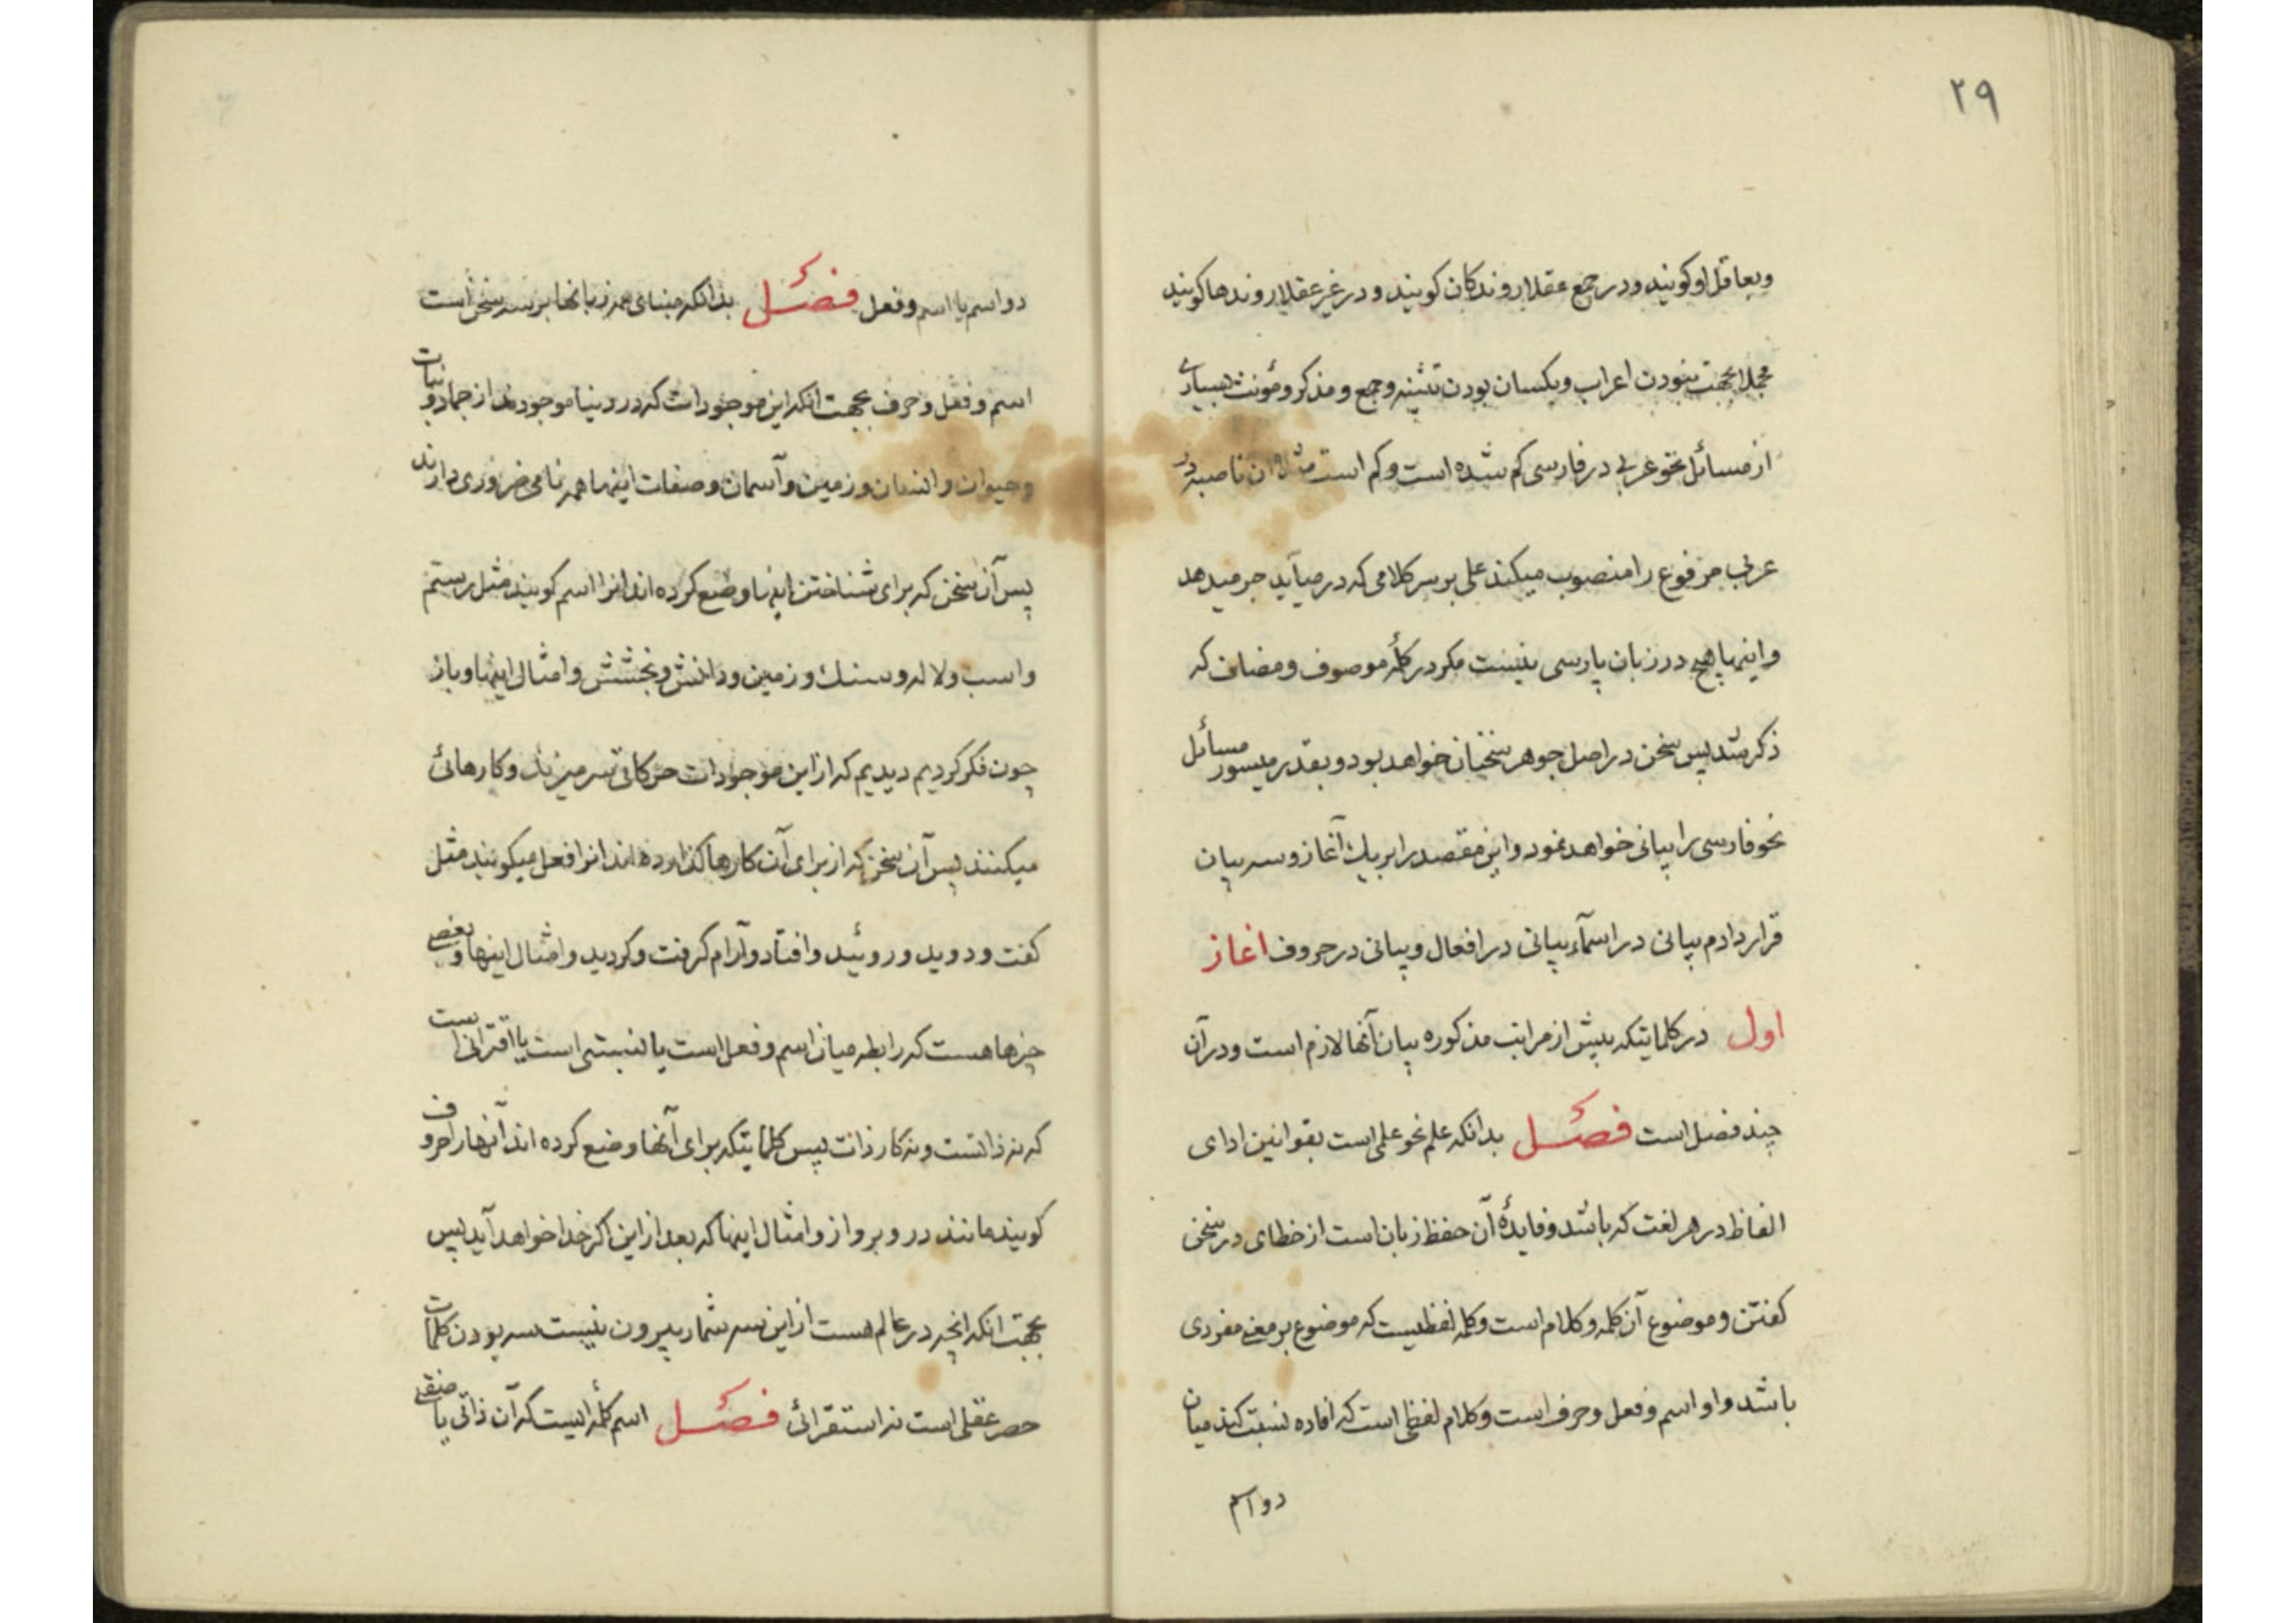 ۲۹
وبعاقل او کویند ودر جمع عقلا روندکان کویند و در غیر عقلا روندها کویند
مجملا بجهت نبودن اعراب ویکسان بودن تثنیه وجمع و مذکر ومؤنث بسیاری
از مسائل نحو عربی در فارسی کم شده است وکم است مثلا ان ناصبه در
عربی مرفوع را منصوب میکند علی بر سر کلامی که در میآید جر میدهد
واینها هیچ در زبان پارسی نیست مکر در کلمه موصوف ومضاف که
ذکر شد پس سخن در اصل جوهر سخنان خواهد بود و بقدر میسور مسائل
نحو فارسی را بیانی خواهد نمود واین مقصد را بر یك آغاز وسه بیان
قرار دادم بیانی در اسمآء بیانی در افعال و بیانی در حروف اغاز
اول در کلماتیکه پیش از مراتب مذکوره بیان آنها لازم است ودر آن
چند فصل است فصل بدانکه علم نحو علمی است بقوانین ادای
الفاظ در هر لغت که باشد وفایدهٔ آن حفظ زبان است از خطای در سخن
کفتن و موضوع آن کلمه وکلام است وکلمه لفظیست که موضوع بر معنی مفردی
باشد واو اسم وفعل وحرف است وکلام لفظی است که افاده نسبت کند میان
دو اسم
دو اسم یا اسم وفعل فصل بدانکه مبنای همه زبانها بر سه سخن است
اسم و فعل وحرف بجهت انکه این موجودات که در دنیا موجودند از جماد ونبات
وحیوان وانسان وزمین وآسمان وصفات اینها همه نامی ضروری دارند
پس آن سخن که برای شناختن اینها وضع کرده اند انرا اسم کویند مثل رستم
واسب ولاله وسنك وزمین ودانش وبخشش وامثال اینها وباز
چون فکر کردیم دیدیم که از این موجودات حرکاتی سر میزند وکارهائی
میکنند پس آن سخن که از برای آن کارها کذارده اند انرا فعل میکویند مثل
کفت ودوید وروئید وافتاد وآرام کرفت وکردید وامثال اینها وبعضی
چیزها هست که رابطه میان اسم وفعل است یا نسبتی است یا اقترانی است
که نه ذاتست ونه کار ذات پس کلماتیکه برای آنها وضع کرده اند آنها را حروف
کویند مانند در وبر واز وامثال اینها که بعد از این اکر خدا خواهد آید پس
بجهت انکه انچه در عالم هست از این سه شمار بیرون نیست سه بودن کلمات
حصر عقلی است نه استقرائی فصل اسم کلمه ایست که آن ذاتی یا صفتی